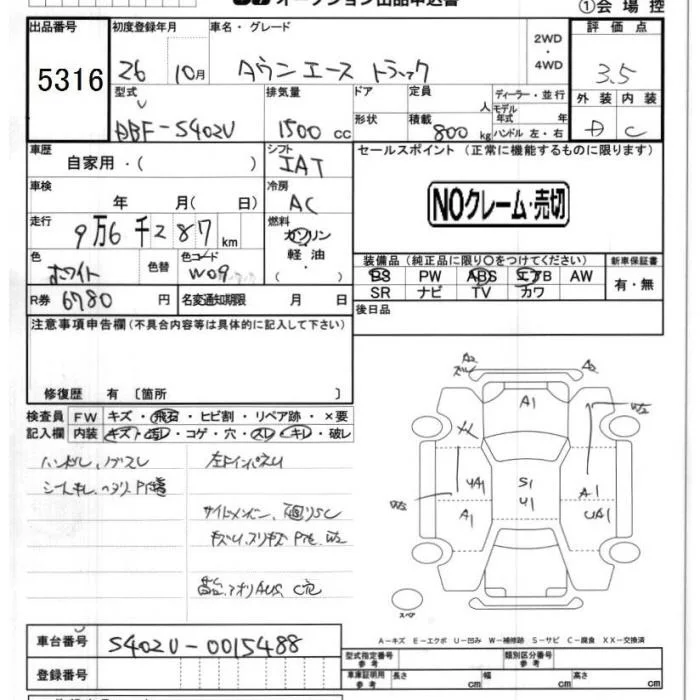 ①会場控
出品番号 初度登録年月 車名・グレード 2WD ・4WD 評価点
5316 26 10月 タウンエース トラック 3.5
型式 排気量 ドア 定員 人 ディーラー・並行 外装 内装
DBF-S402U 1500 cc 形状 積載 800 kg モデル年式 年 ハンドル 左・右 D C
車歴 自家用・( ) シフト IAT セールスポイント (正常に機能するものに限ります)
車検 年 月( 日) 冷房 AC
NOクレーム・売切
走行 9万6千287km 燃料 ガソリン 軽油・( )
色 ホワイト 色替 色コード W09
装備品 (純正品に限り○をつけてください) 新車保証書
PS PW ABS エアB AW 有・無
SR ナビ TV カワ
R券 6780 円 名変通知期限 月 日 後日品
注意事項申告欄(不具合内容等は具体的に記入して下さい)
修復歴 有 〔箇所 〕
検査員 FW キズ・飛石・ヒビ割・リペア跡・×要
記入欄 内装 キズ・汚レ・コゲ・穴・スレ・キレ・破レ
A2
A2
A1
W2
S1
U1
A1
A1
UA1
W2
スペア
A-キズ E-エクボ U-凹み W-補修跡 S-サビ C-腐食 XX-交換済
車台番号 S402U-0015488
登録番号
型式指定番号 参考 類別区分番号 参考
車庫証明用 参考 長さ cm 幅 cm 高さ cm